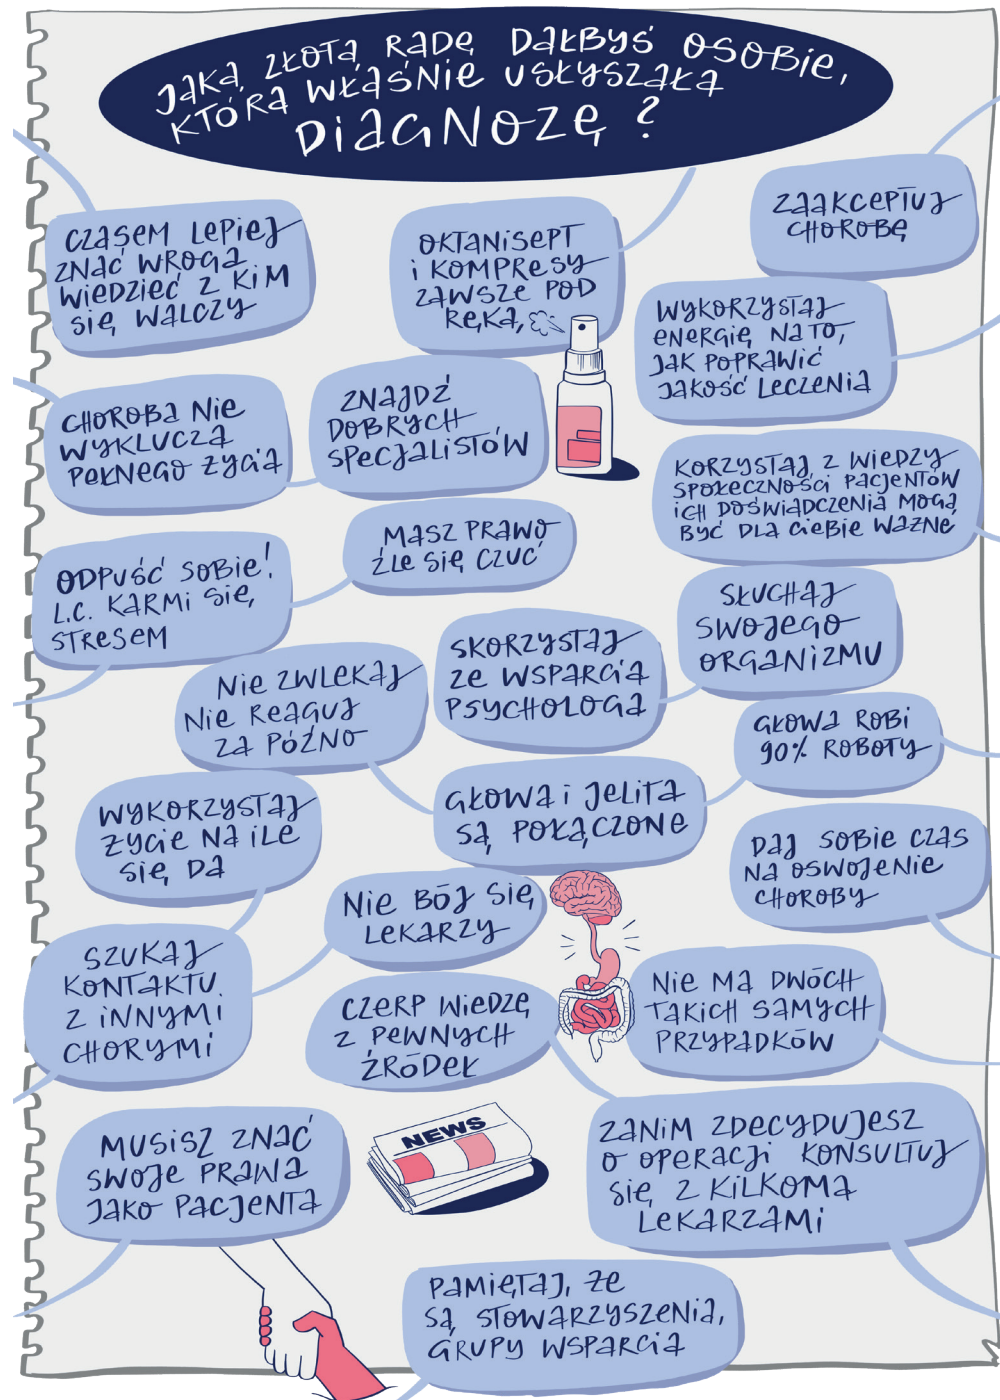 JAKĄ ZŁOTĄ RADĘ DAŁBYŚ OSOBIE,
KTÓRA WŁAŚNIE USŁYSZAŁA
DIAGNOZĘ ?
CZASEM LEPIEJ
ZNAĆ WROGA
WIEDZIEĆ Z KIM
SIĘ WALCZY
OKTANISEPT
I KOMPRESY
ZAWSZE POD
RĘKĄ
ZAAKCEPTUJ
CHOROBĘ
WYKORZYSTAJ
ENERGIĘ NA TO,
JAK POPRAWIĆ
JAKOŚĆ LECZENIA
CHOROBA NIE
WYKLUCZA
PEŁNEGO ŻYCIA
ZNAJDŹ
DOBRYCH
SPECJALISTÓW
KORZYSTAJ Z WIEDZY
SPOŁECZNOŚCI PACJENTÓW
ICH DOŚWIADCZENIA MOGĄ
BYĆ DLA CIEBIE WAŻNE
MASZ PRAWO
ŹLE SIĘ CZUĆ
ODPUŚĆ SOBIE!
L.C. KARMI SIĘ
STRESEM
SŁUCHAJ
SWOJEGO
ORGANIZMU
SKORZYSTAJ
ZE WSPARCIA
PSYCHOLOGA
NIE ZWLEKAJ
NIE REAGUJ
ZA PÓŹNO
GŁOWA ROBI
90% ROBOTY
GŁOWA I JELITA
SĄ POŁĄCZONE
WYKORZYSTAJ
ŻYCIE NA ILE
SIĘ DA
DAJ SOBIE CZAS
NA OSWOJENIE
CHOROBY
NIE BÓJ SIĘ
LEKARZY
SZUKAJ
KONTAKTU
Z INNYMI
CHORYMI
CZERP WIEDZĘ
Z PEWNYCH
ŹRÓDEŁ
NIE MA DWÓCH
TAKICH SAMYCH
PRZYPADKÓW
MUSISZ ZNAĆ
SWOJE PRAWA
JAKO PACJENTA
NEWS
ZANIM ZDECYDUJESZ
O OPERACJI KONSULTUJ
SIĘ Z KILKOMA
LEKARZAMI
PAMIĘTAJ, ŻE
SĄ STOWARZYSZENIA,
GRUPY WSPARCIA